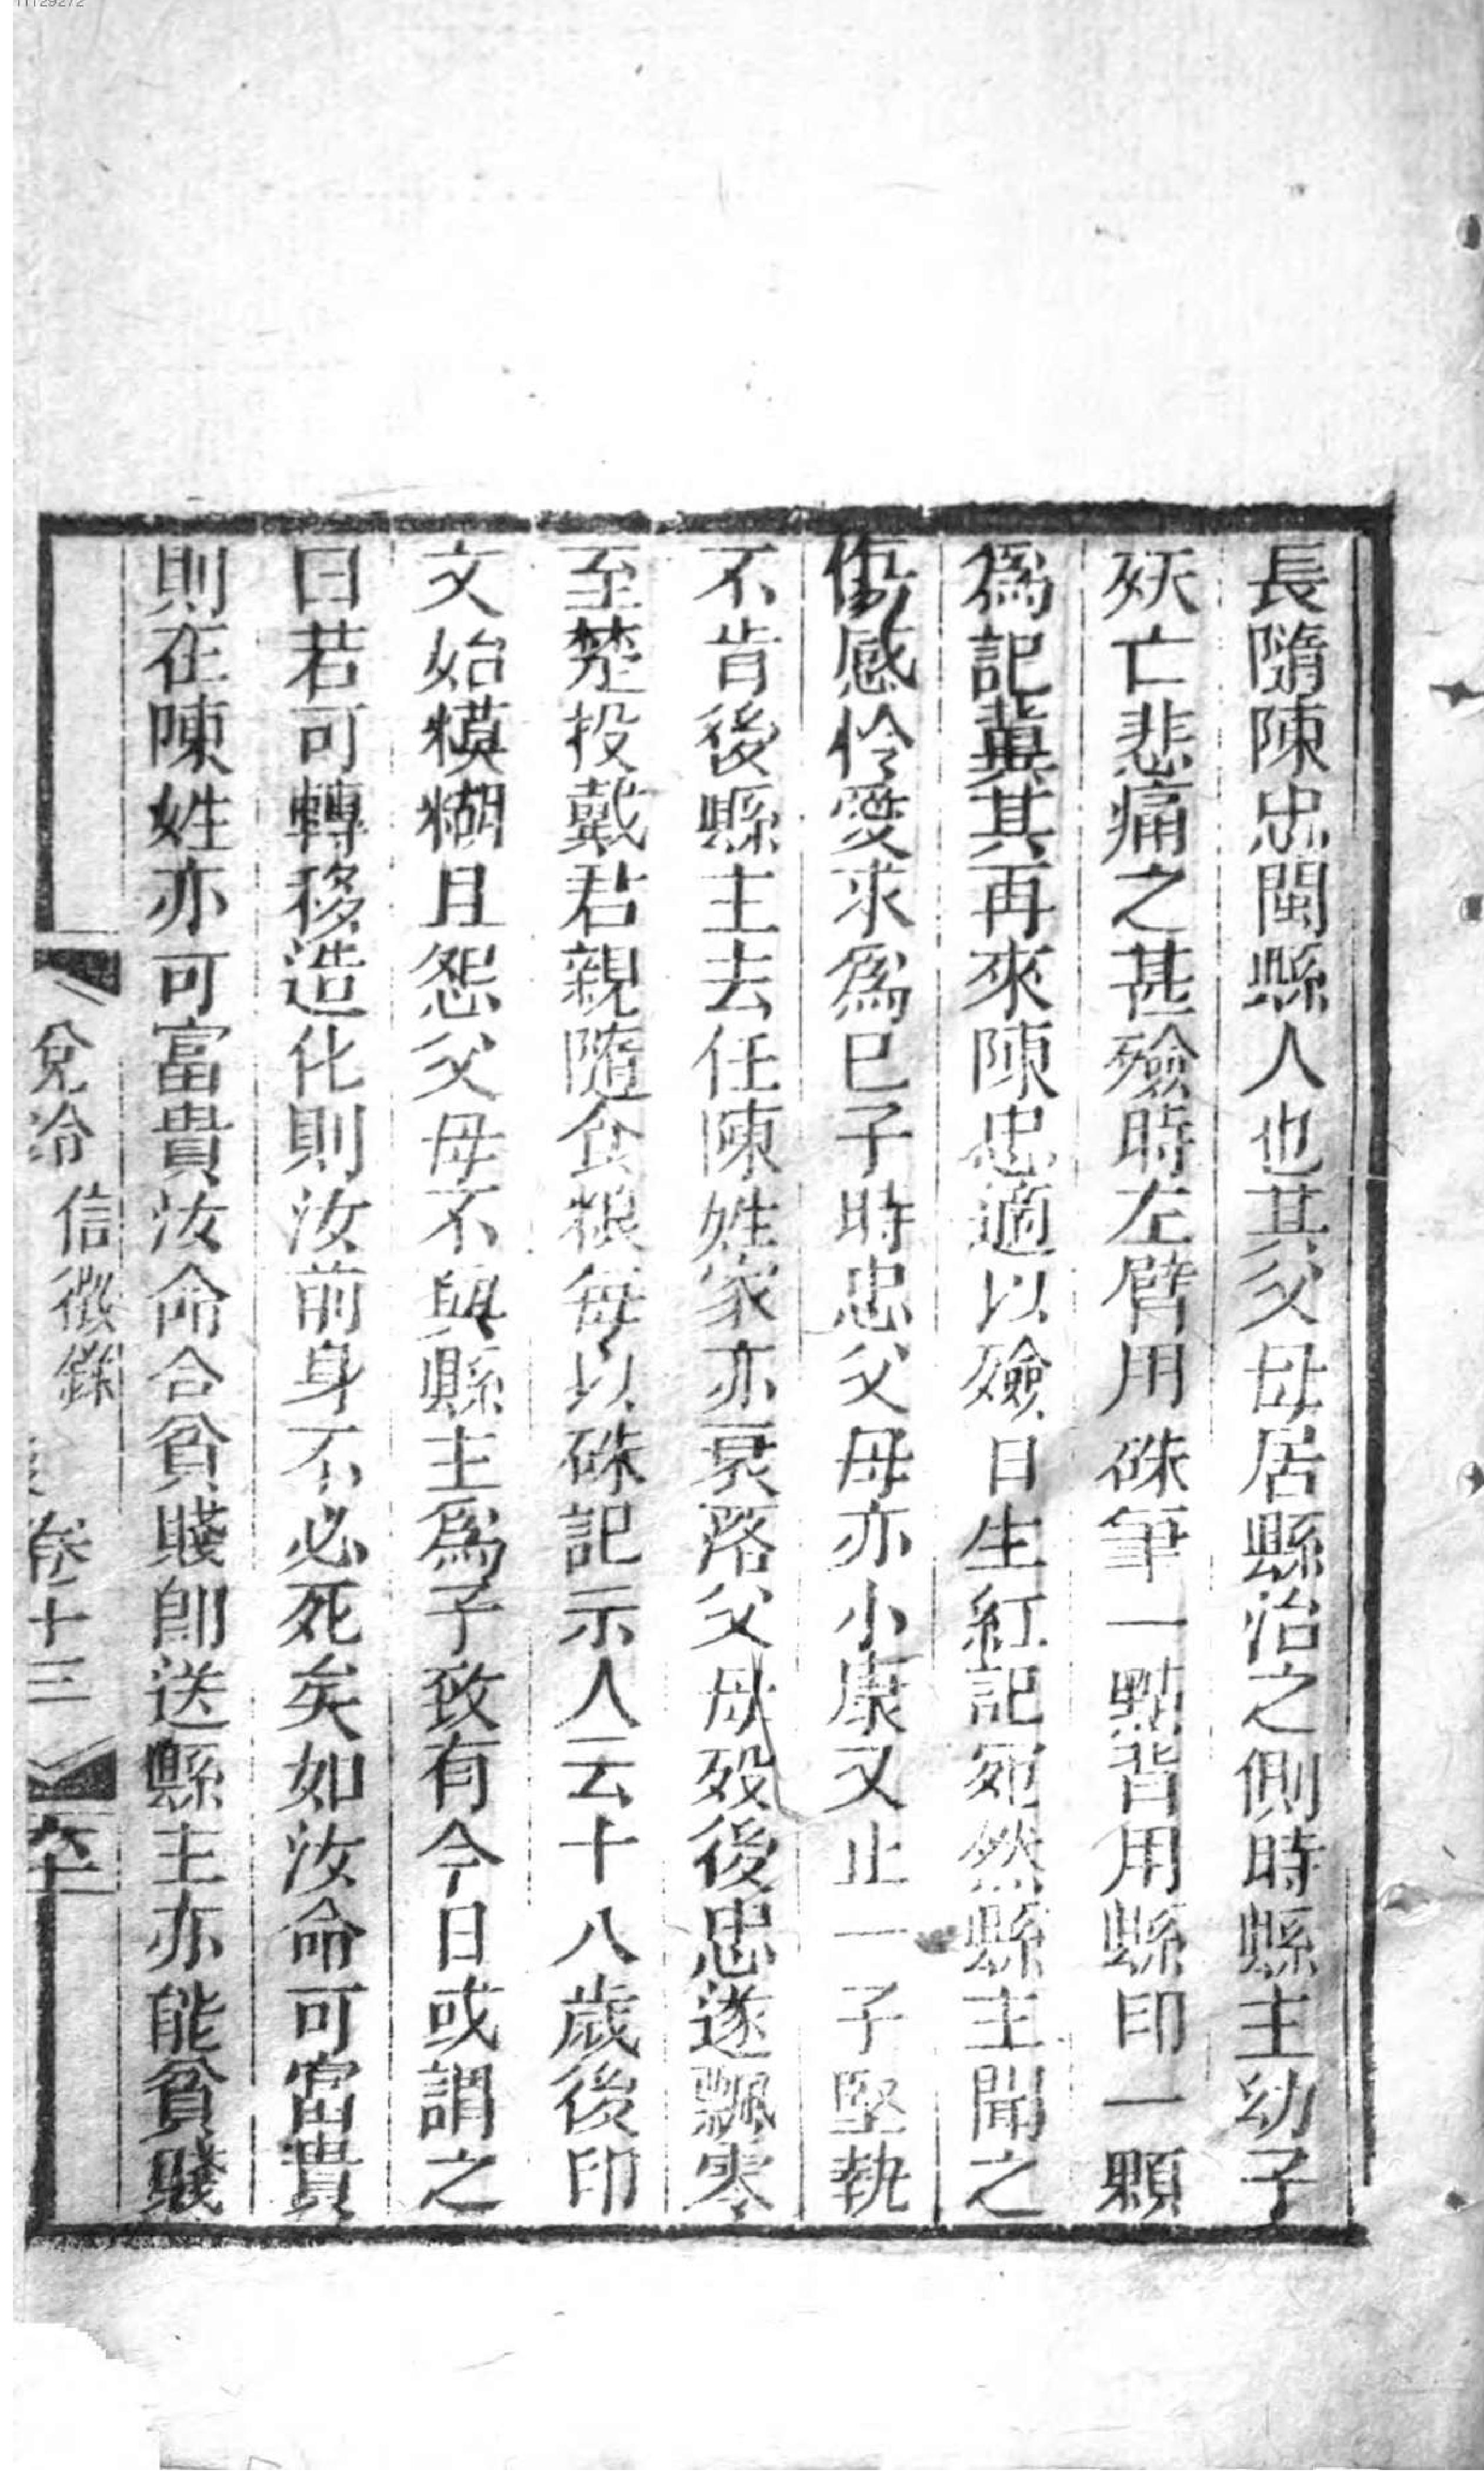 長隨陳忠閩縣人也其父母居縣治之側時縣主幼子
殀亡悲痛之甚殮時左臂用硃筆一點背用縣印一顆
爲記冀其再來陳忠適以殮日生紅記宛然縣主聞之
傷感怜愛求爲已子時忠父母亦小康又止一子堅執
不肯後縣主去任陳姓家亦衰落父母歿後忠遂飄零
至楚投戴君親隨食粮每以硃記示人云十八歲後印
文始模糊且怨父母不與縣主爲子致有今日或謂之
曰若可轉移造化則汝前身不必死矣如汝命可富貴
則在陳姓亦可富貴汝命合貧賤卽送縣主亦能貧賤
信徵錄 卷十三
11129272